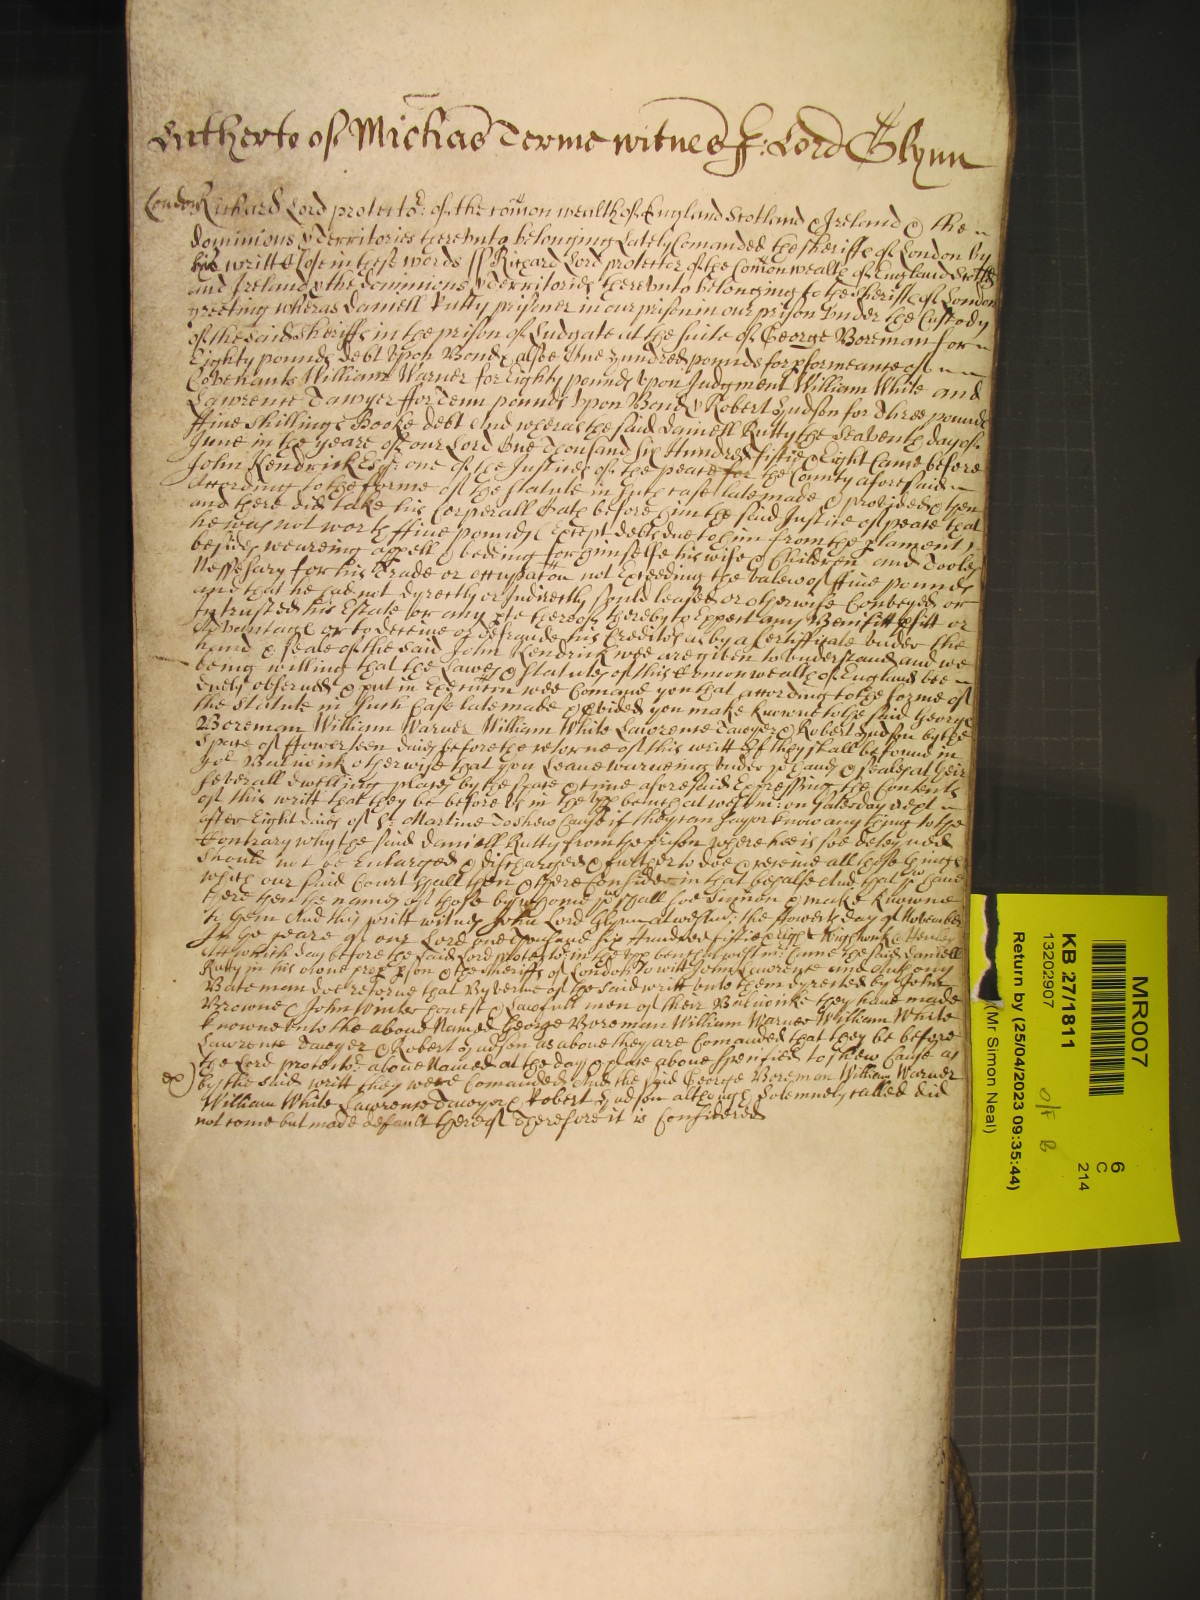 Hitherto of Michas Terme witnes J: Lord Glynn
London Richard Lord protector: of the comon wealth of England Scotland & Ireland & the
dominions & Territories thereunto belonging Lately Comanded the Sheriffs of London by
his writt Close in these words ss Richard Lord protector of the Comonwealth of England Scotld
and Ireland & the dominions & Territories thereunto belonging to the Sheriffs of London
greeting wheras Daniell Rutty prisoner in our prison in our prison under the Custody
of the said Sheriffs in the prison of Ludgate at the suite of George Boreman for
Eighty pounds debt upon Bond & alsoe One hundred pounds for pformeance of
Covenants William Warner for Eighty pounds upon Judgment William White and
Lawrence Sawyer ffor Tenn pounds upon Bond & Robert Hudson for Three pounds
ffive shillings Booke debt And wheras the said Daniell Rutty the Seaventh day of
June in the yeare of our Lord One Thousand Six Hundred fiftie & Eight Came before
John Kendrick Esqr: one of the Justices of the peace for the County aforesaid
according to the forme of the statute in such case late made & provided & then
and there did take his Corperall Oath before him the said Justice of peace that
he was not worth ffive pounds Except debts due to him from the plament
besides weareing appell & beding for himselfe his wife & Children and Tooles
Nessesary for his Trade or occupation not Exceeding the valew of ffive pounds
and that he had not dyrectly or Indirectly sould leased or otherwise Conveyed or
Intrusted his Estate or any pte thereof thereby to Expect any Benifitt pfitt or
Advantage or to deceive or defraude his Creditors as by a Certifficate under the
hand & seale of the said John Kendrick wee are given to understand and we
being willing that the Lawes & statutes of this Comonwealth of England bee
duely observed & put in Execution wee Comand you that according to the forme of
the statute in such Case late made & pvided you make knowne to the said George
Boreman William Warner William White Lawrence Sawyer & Robert Hudson by the
space of ffowerteen daies before the retorne of this writt If they shall be found in
yor Baliwick otherwise that you Leave warneing under yor hands & seales at their
severall dwelling places by the space & time aforesaid Expressing the Contents
of this writt that they be before us in the upp bench at westmr: on Saterday next
after Eight daies of St. Martine To shew Cause if they can say or know any thing to the
Contrary why the said Daniell Rutty from the prison where hee is soe deteyned
should not be Enlarged & discharged & further to doe & receive all those things
which our said Court shall then & there Consider in that behalfe And that you have
there then the names of those by whome you shall soe Sumon & make knowne
to them And this writt witnes John Lord Glynn at westmr: the flowerth day of November
In the yeare of our Lord one Thousand six Hundred fiftie & Eight Wightwick & Henley
Att which day before the said Lord protector in the upp bench at westmr: Came the said Daniell
Rutty in his owne prop pson & the sheriffs of London To witt John Lawrence and Anthony
Bateman doe retorne that By vertue of the said writt unto them dyrected by John
Browne & John Winter honest & Lawfull men of their Baliwicke they have made
knowne unto the above Named George Boreman William Warner William White
Lawrence Sawyer & Robert Hudson as above they are Comanded that they be before
the Lord protector: above Named at the day & place above specified to shew Cause as
by the said writt they were Comanded And the said George Boreman William Warner
William White Lawrence Sawyer & Robert Hudson although Solemnely called did
not come but made default thereof Therefore it is Considered
MR007
KB 27/1811
13202907
Return by (25/04/2023 09:35:44)
(Mr Simon Neal)
6
C
214